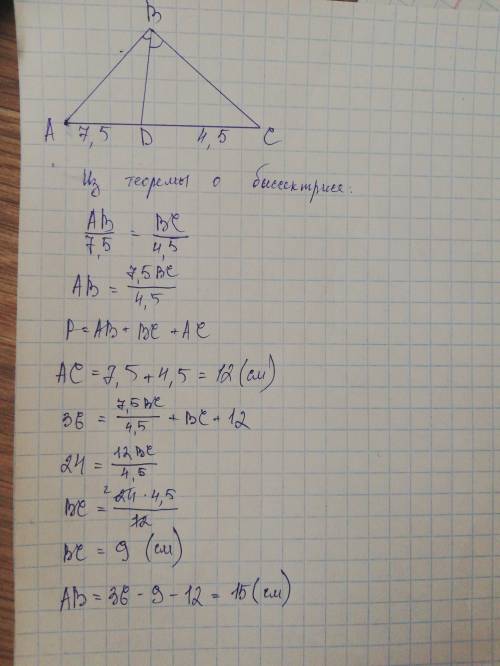 B
A 7,5 D 4,5 C
Из теоремы о биссектрисе:
AB/7,5 = BC/4,5
AB = 7,5BC/4,5
P = AB + BC + AC
AC = 7,5 + 4,5 = 12 (см)
36 = 7,5BC/4,5 + BC + 12
24 = 12BC/4,5
BC = 2 24 · 4,5/12
BC = 9 (см)
AB = 36 - 9 - 12 = 15 (см)